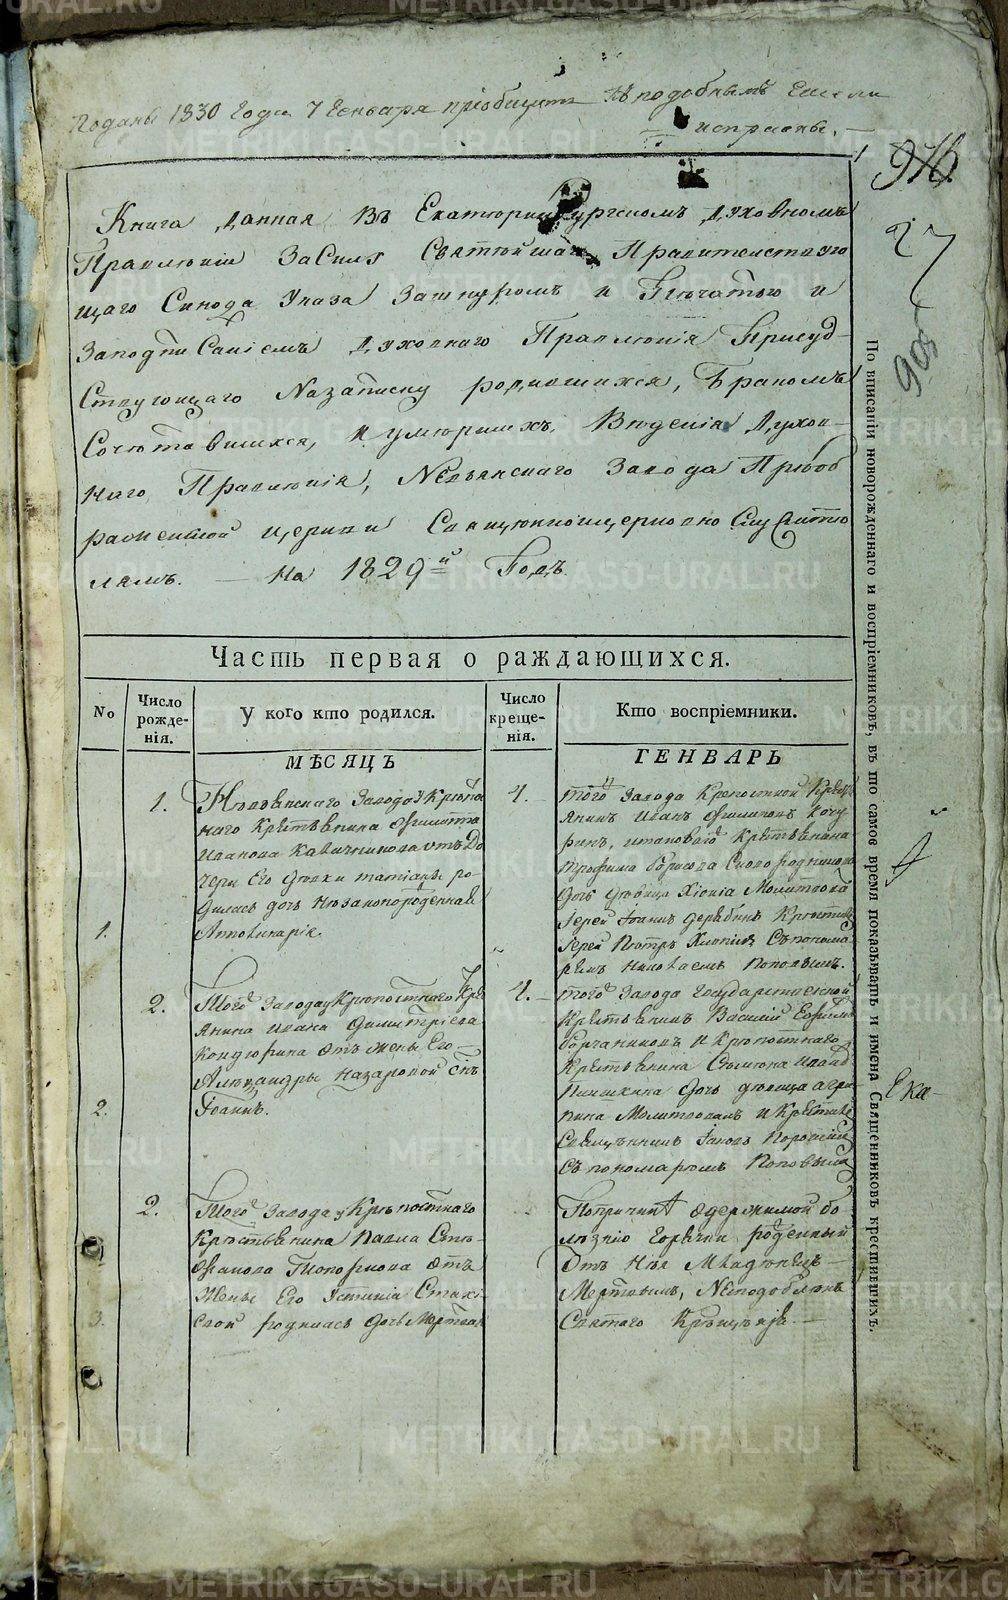 Поданы 1830 Года 7 Генваря приобщить къ подобнымъ
исправны.
Книга данная Въ Екатеринбургскомъ Духовномъ
Правленіи За Силу Святѣйшаго Правителствую
щаго Синода Указа За шнуромъ и Печатью и
За подписаніемъ Духовнаго Правленія Присуд-
Ствующаго На записку родившихся, Бракомъ
Сочетавшихся, и умершихъ, Вѣденія Духов-
наго Правленія, Невьянскаго Завода Преоб
раженской церкви Священноцерковно Служите
лямъ. — На 1829й Годъ.
Часть первая о раждающихся.
No
Число
рожде-
нія.
У кого кто родился.
Число
креще-
нія.
Кто воспріемники.
МѢСЯЦЪ
ГЕНВАРЬ
1.
1.
Невьянскаго Завода у Крѣпо
наго Крестьянина Филиппа
Иванова отъ До
чери Его Дѣвки ро-
дилась дочь Незаконорожденная
Аполинарія
4.
того Завода Крепостной Крест
янинъ Иванъ Филиповъ Кочу
ринъ, Крестьянина
Трофима Борисова
дочь дѣвица Хіонія Молитвовалъ
Іерей Іоаннъ Дерябинъ Крестилъ
Іерей Петръ Хлопинъ Съ понома
ремъ Николаемъ Поповымъ.
2.
2.
Того Завода у Крепостнаго Крес
янина Ивана Димитріева
Кондюрина Отъ жены Его
Александры Назаровой Снъ
Іоаннъ.
4.
того Завода Государственной
Крестьянинъ Василій Ефимовъ
и Крепостнаго
Крестьянина Семиона Иванова
Пиншкина дочь дѣвица Агри
пина Молитвовалъ и Крестилъ
Священникъ Іаковъ
Съ пономаремъ Поповымъ
2.
3.
Того Завода у Крѣпостнаго
Крестьянина Павла Сте-
фанова Топоркова Отъ
Жены Его Устинiи
родилась дочь Мертвая
По причинѣ Одержимой бо-
лезнію Горячки рожденный
Отъ Нея Младенецъ
Мертвымъ, Несподобленъ
Святаго Крещенія.
По вписаніи новорожденнаго и воспріемниковъ, въ то самое время показывать и имена Священниковъ крестившихъ.
976.
27
903
Ека-
METRIKI.GASO-URAL.RU